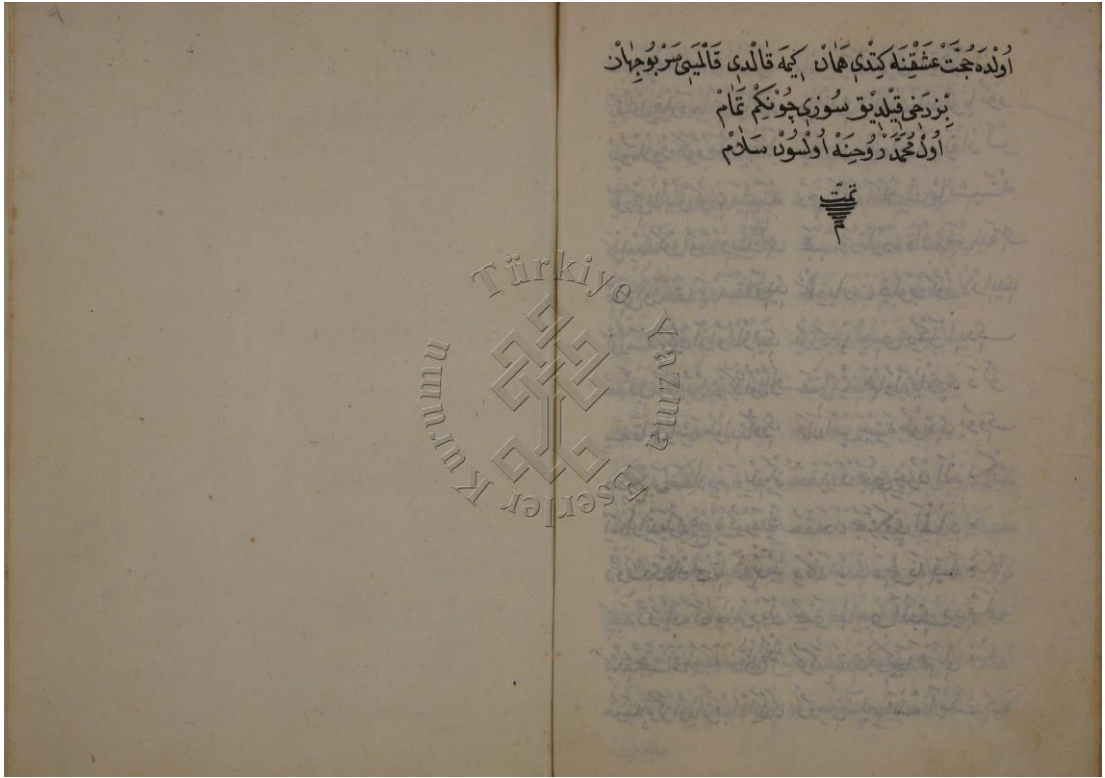 اُولْدَه جُجَّتْ عَشْقِنَه كِتْدِي هَمَانْ كِيمَه قَالْدِي قَالْمَيِسَرْ بُو جِهَانْ
بِزدَخِي قِيلْدِيقْ سُوزِي چُونْكِمْ تَمَامْ
اُولْ مُحَمَّدْ رُوحِنَه اُولْسُونْ سَلَامْ
تمت
م
Türkiye Yazma Eserler Kurumu